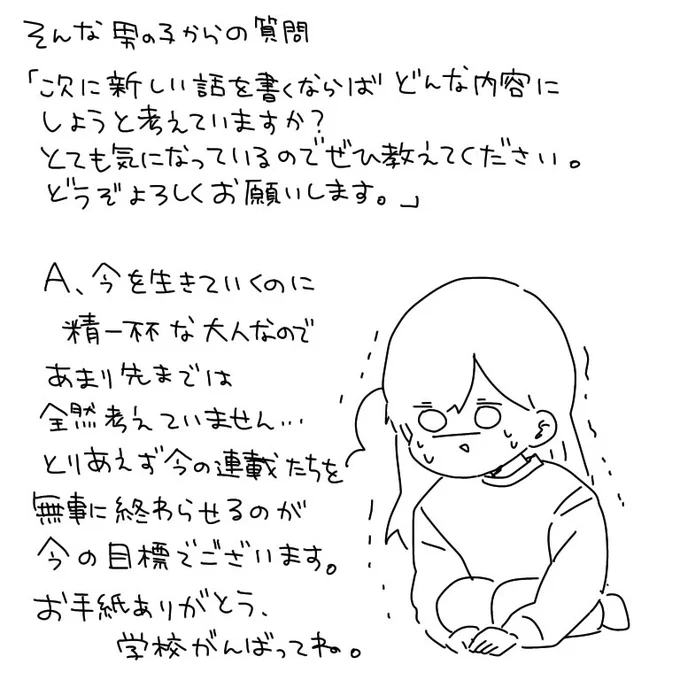 そんな男の子からの質問
「次に新しい話を書くならば どんな内容に
しようと考えていますか？
とても気になっているのでぜひ教えてください。
どうぞよろしくお願いします。」
A、今を生きていくのに
精一杯な大人なので
あまり先までは
全然考えていません…
とりあえず今の連載たちを
無事に終わらせるのが
今の目標でございます。
お手紙ありがとう、
学校がんばってね。